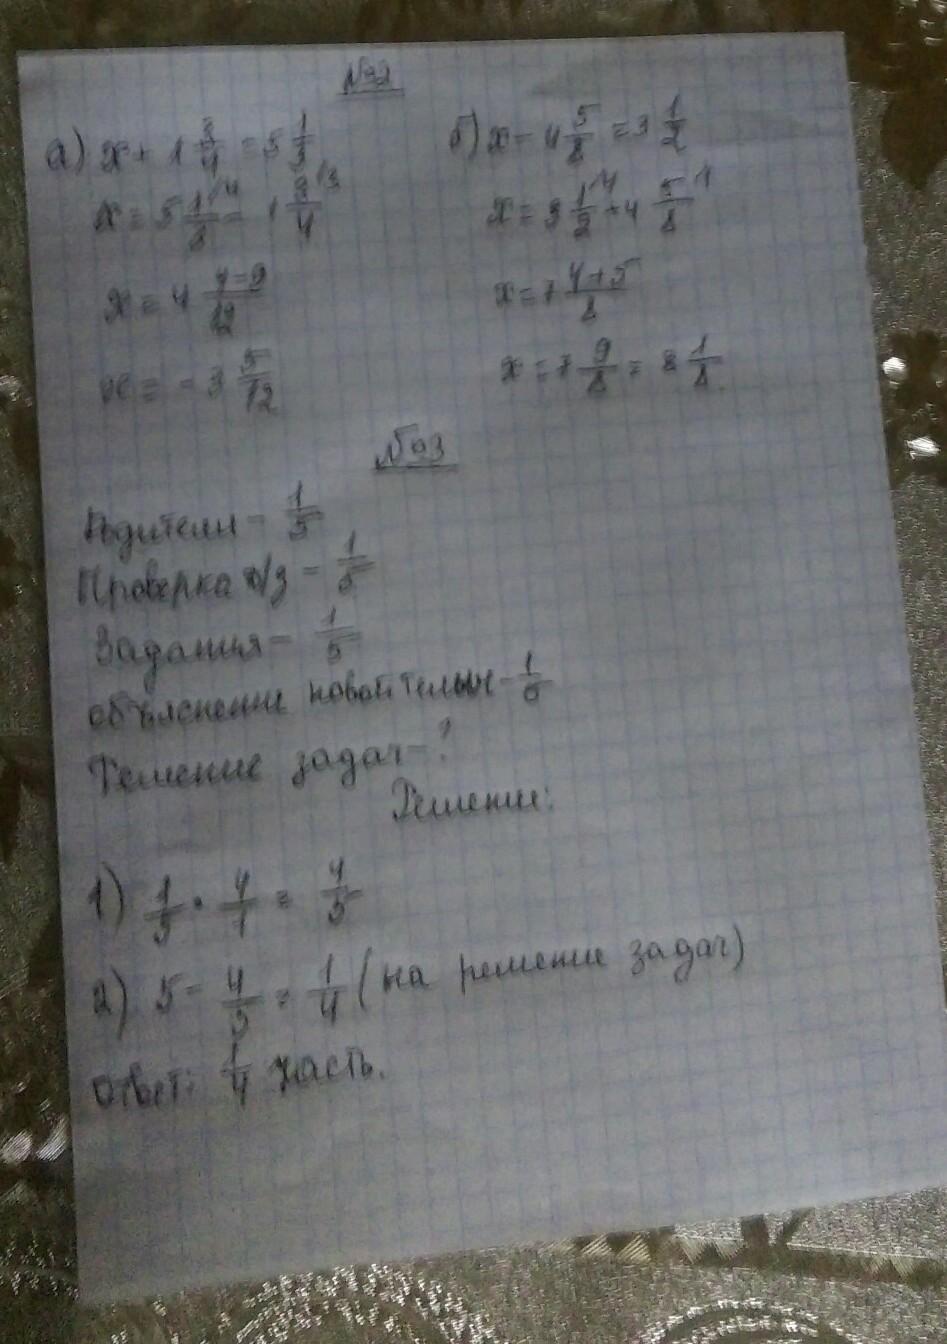 №92
а) x + 1 3/4 = 5 1/3
x = 5 1/3 /4 - 1 3/4 /3
x = 4 4-9/12
x = - 3 5/12
б) x - 4 5/8 = 3 1/2
x = 3 1/2 /4 + 4 5/8 /1
x = 7 4+5/8
x = 7 9/8 = 8 1/8.
№93
Родители - 1/5
Проверка д/з - 1/5
Задания - 1/5
объяснение новой - 1/5
Решение задач - ?
Решение:
1) 1/5 · 4/1 = 4/5
2) 5 - 4/5 = 1/4 (на решение задач)
Ответ: 1/4 часть.